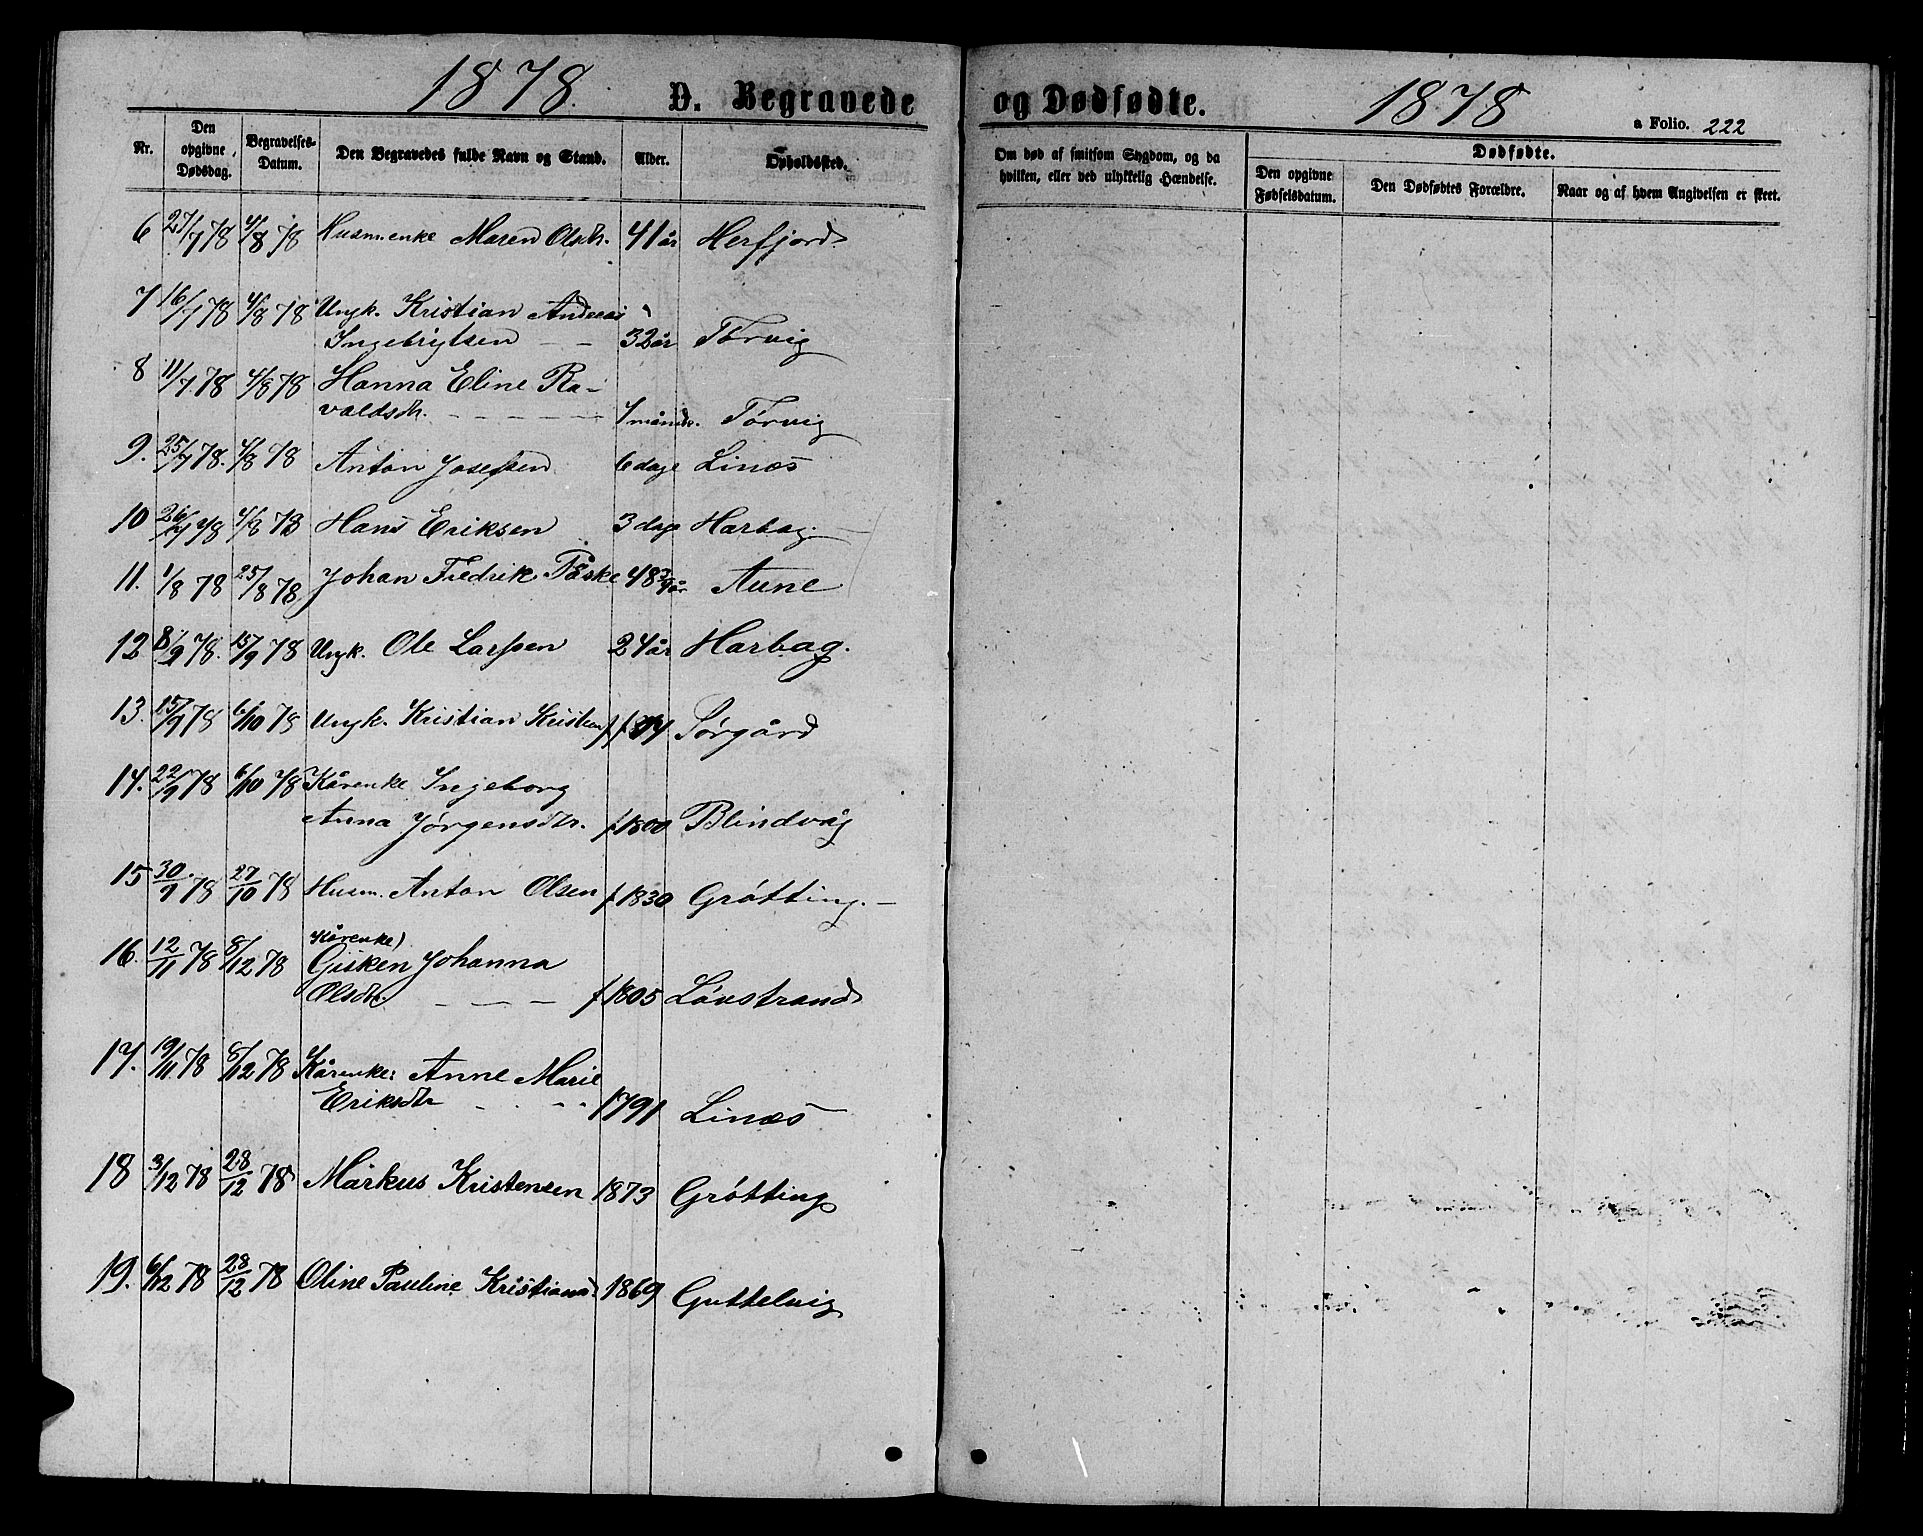 1878. D. Begravede og Dødfødte. 1878 a Folio. 222
Nr. Den opgivne Dødsdag. Begravelses-Datum. Den Begravedes fulde Navn og Stand. Alder. Opholdssted. Om død af smitsom Sygdom, og da hvilken, eller ved ulykkelig Hændelse. Dødfødte. Den opgivne Fødselsdatum. Den Dødfødtes Forældre. Naar og af hvem Angivelsen er skeet.
6 27/7 78 4/8 78 Husmenke Maren Olsdtr. 41 år Herfjord
7 16/7 78 4/8 78 Ungk. Kristian Andreas
Ingebrigtsen — — 32 år Tørvig
8 11/7 78 4/8 78 Hanna Eline Ra-
valdsdtr. — — — — Tørvig
9. 25/7 78. 4/8 78 Anton Josefsen 6 dage Linæs
10 26/7 78 4/8 78 Hans Eriksen 3 dage Harbag.
11. 1/8 78 25/8 78 Johan Fredrik Påske 48 år Aune
12 8/9 78. 15/9 78 Ungk. Ole Larssen 24 år Harbag.
13. 15/9 78 6/10 78 Ungk. Kristian Sørgård
14. 22/9 78 6/10 78 Kårenke Ingeborg
Anna Jørgensdtr. f 1800 Blindvåg
15 30/9 78 27/10 78 Husm. Anton Olsen f 1830 Gråtting. —
16. 12/11 78 8/12 78 Kårenke)
Gisken Johanna
Olsdtr. — — — f 1805 Løvstrand
17. 19/11 78 8/12 78 Kårenke: Anne Marie
Eriksdtr - . - - 1791 Linæs
18 3/12 78 28/12 78 Markus Kristensen 1873 Gråtting
19. 6/12 78 28/12 78 Oline Pauline Kristiansd. 1869 Guttelvig